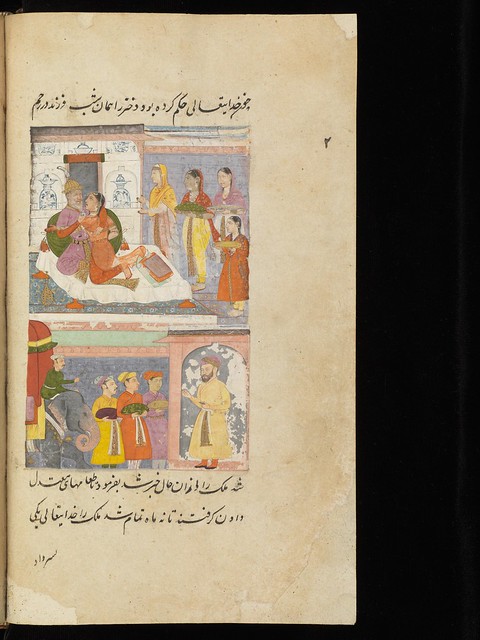 چون خدایتعالی حکم کرده بود دختر را همان شب فرزند در رحم
۲
شد ملک را از آن حال خبر شد بفرمود تا طعامهای معتدل
دادن گرفتند تا نه ماه تمام شد ملک را خدایتعالی یکی
پسر داد